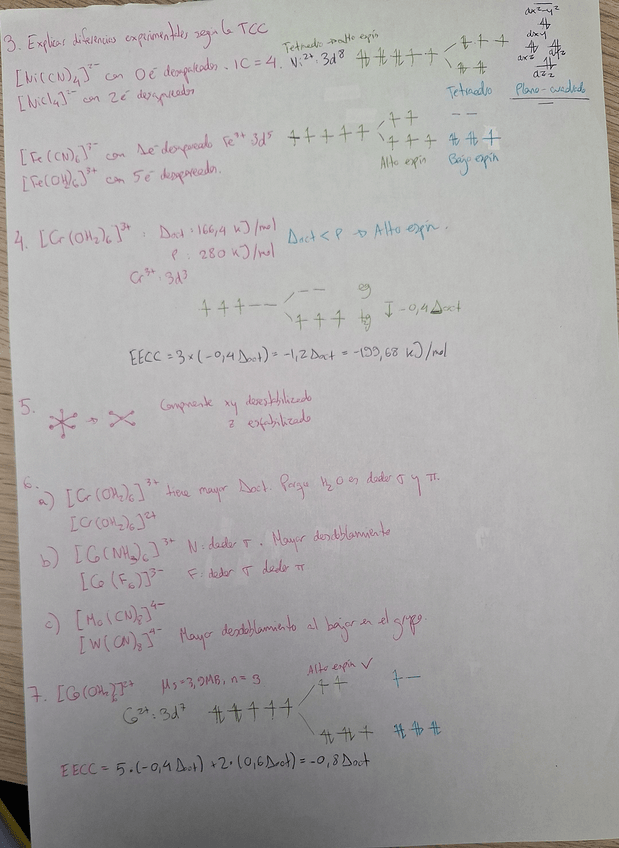 3. Explicar diferencias experimentales según la TCC
[Ni(CN)4]2- con 0 é desapareados. IC = 4.
Tetraedro → alto espín
Ni2+: 3d8
[NiCl4]2- con 2 é desapareados
Tetraedro
dx2-y2
dxy
dxz dyz
dz2
Plano-cuadrado
[Fe(CN)6]3- con 1 é desapareado Fe3+ 3d5
[Fe(OH2)6]3+ con 5 é desapareados.
Alto espín
Bajo espín
4. [Cr(OH2)6]3+ : Δoct = 166,4 KJ/mol
P : 280 KJ/mol
Δoct < P → Alto espín.
Cr3+: 3d3
eg
t2g
-0,4 Δoct
EECC = 3 × (-0,4 Δoct) = -1,2 Δoct = -199,68 KJ/mol
5.
Componente xy desestabilizado
z estabilizado
6.
a) [Cr(OH2)6]3+ tiene mayor Δoct. Porque H2O es dador σ y π.
[Cr(OH2)6]2+
b) [Co(NH3)6]3+ N: dador σ. Mayor desdoblamiento
[Co(F6)]3- F: dador σ dador π
c) [Mo(CN)8]4-
[W(CN)8]4- Mayor desdoblamiento al bajar en el grupo.
7. [Co(OH2)]2+ μs = 3,9 MB, n = 3
Alto espín ✓
Co2+: 3d7
EECC = 5·(-0,4 Δoct) + 2·(0,6 Δoct) = -0,8 Δoct